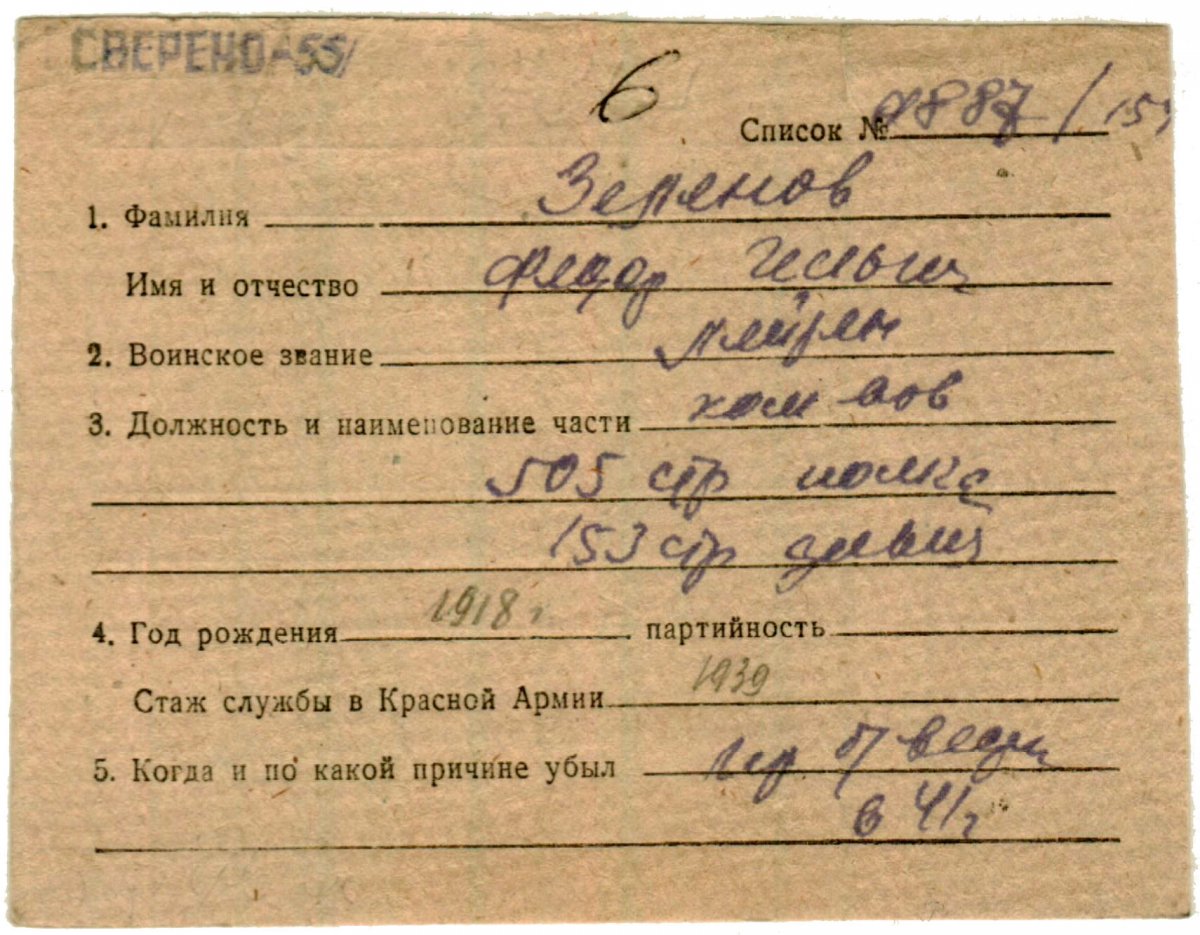 СВЕРЕНО-55/
6
Список № 9887/153
1. Фамилия Зерянов
Имя и отчество Федор Ильич
2. Воинское звание лейтен
3. Должность и наименование части ком взв
505 стр полка
153 стр дивиз
4. Год рождения 1918 г партийность
Стаж службы в Красной Армии 1939
5. Когда и по какой причине убыл пр б/ вести
в 41г